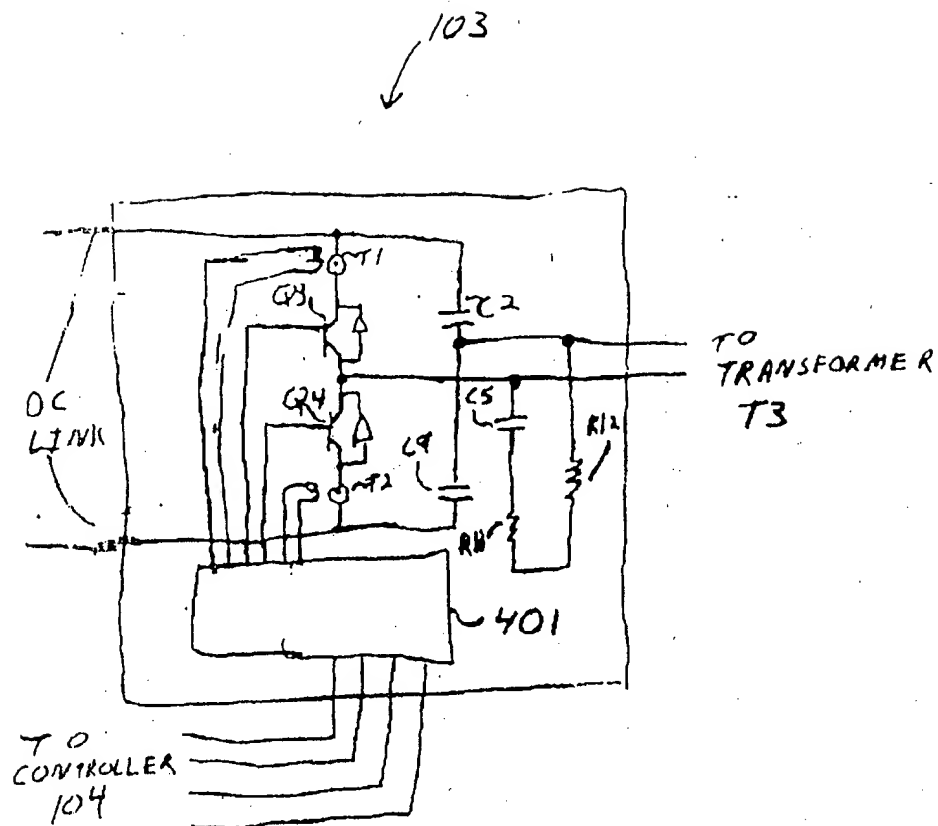 103
T1
Q3
C2
TO
TRANSFORMER
T3
C5
R12
DC
LINK
Q4
C4
T2
R11
401
TO
CONTROLLER
104